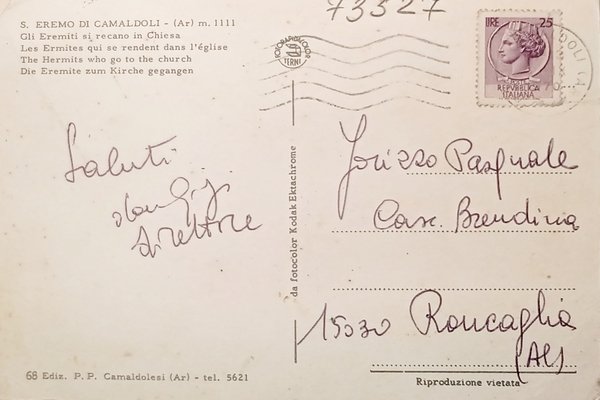 S. EREMO DI CAMALDOLI - (Ar) m. 1111
Gli Eremiti si recano in Chiesa
Les Ermites qui se rendent dans l'église
The Hermits who go to the church
Die Eremite zum Kirche gegangen
73527
LIRE 25
REPVBBLICA
ITALIANA
TERNI
Saluti
don Gigi
direttore
da fotocolor Kodak Ektachrome
Pasquale
Casc. Brendina
15030 Roncaglia
(AL)
68 Ediz. P. P. Camaldolesi (Ar) - tel. 5621
Riproduzione vietata